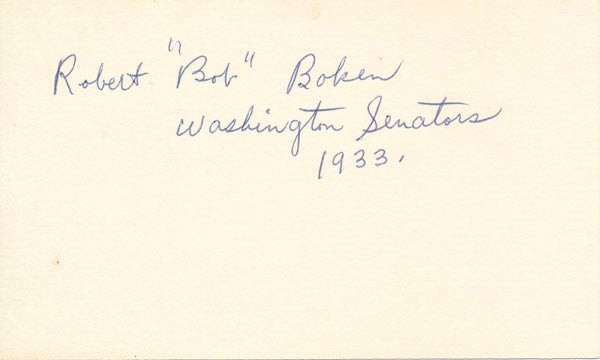 Robert "Bob" Boken
Washington Senators
1933.